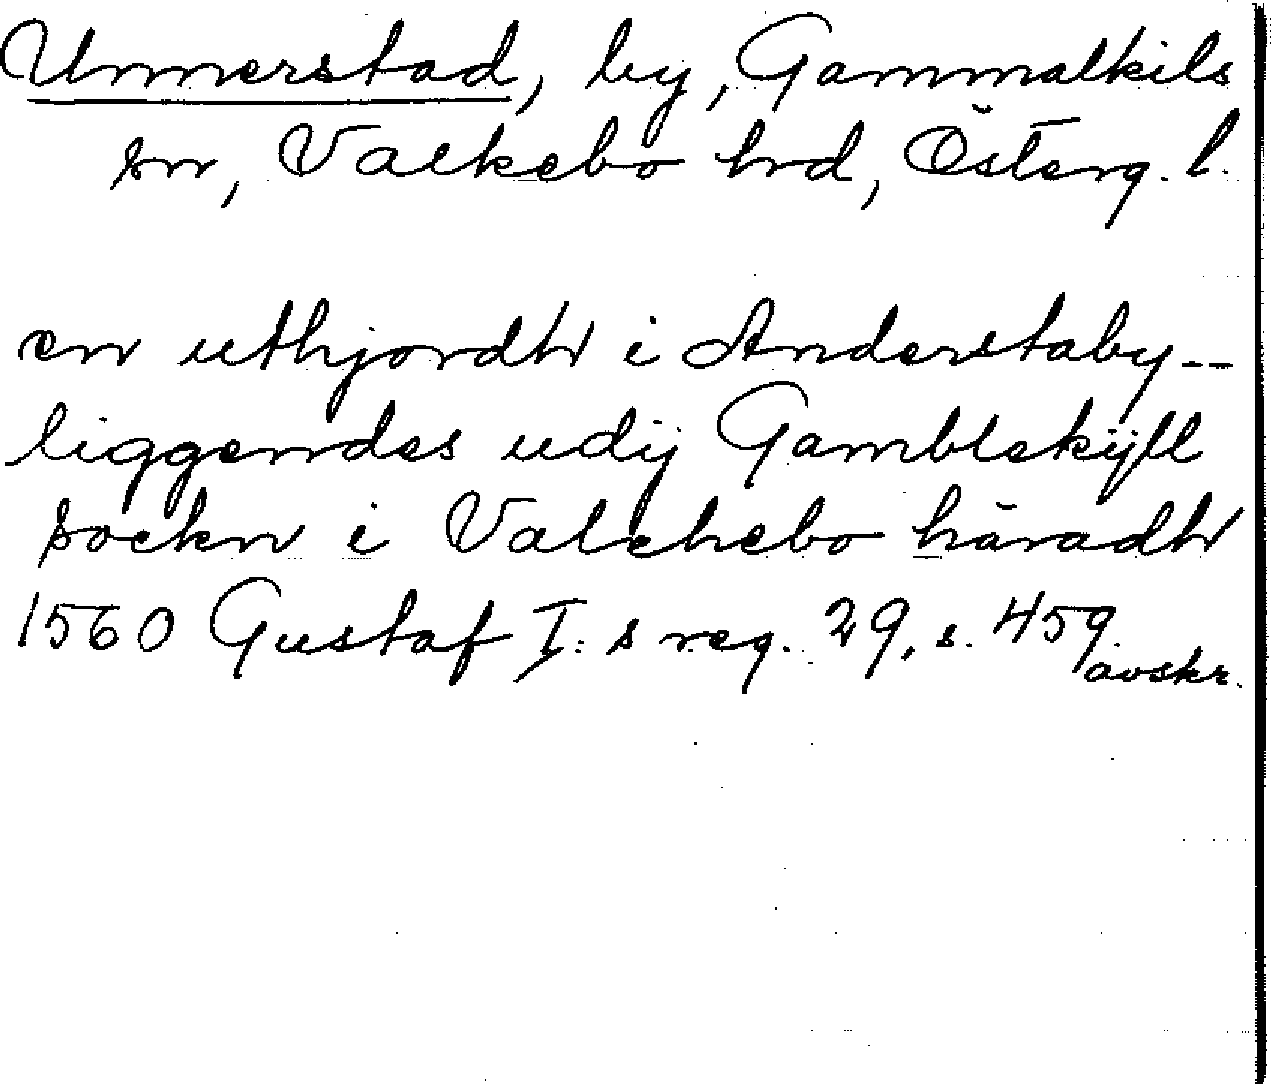 Unnerstad, by, Gammalkils
sn, Valkebo hrd, Österg. l.
en uthjordh i Anderstaby--
liggendes udij Gamblekijll
sockn i Valchebo häradh
1560 Gustaf I:s reg. 29, s. 459.
avskr.